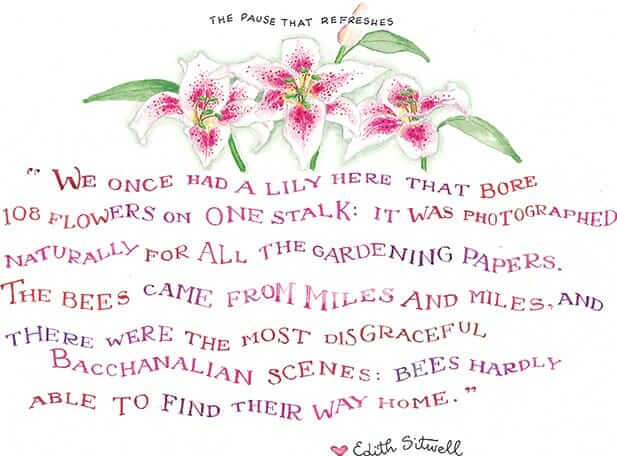 THE PAUSE THAT REFRESHES
" WE ONCE HAD A LILY HERE THAT BORE
108 FLOWERS ON ONE STALK: IT WAS PHOTOGRAPHED
NATURALLY FOR ALL THE GARDENING PAPERS.
THE BEES CAME FROM MILES AND MILES, AND
THERE WERE THE MOST DISGRACEFUL
BACCHANALIAN SCENES: BEES HARDLY
ABLE TO FIND THEIR WAY HOME. "
Edith Sitwell